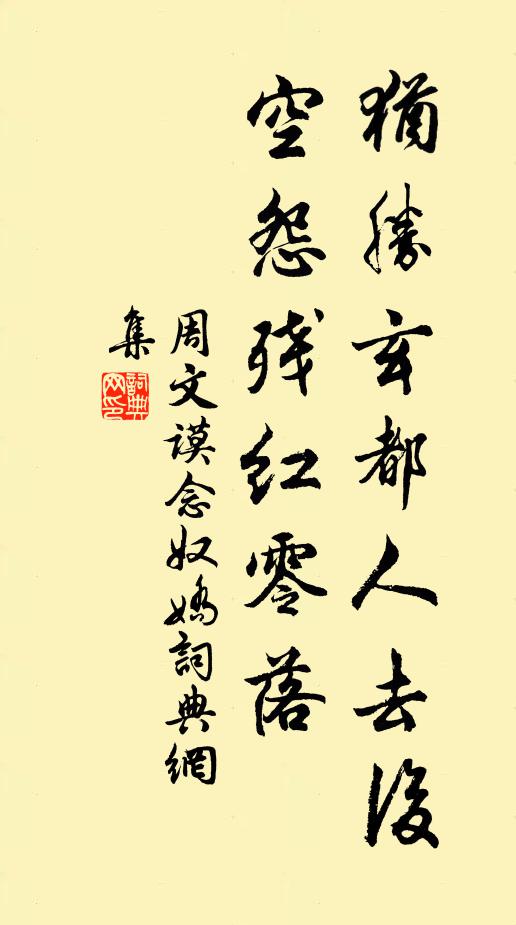 猶勝玄都人去後
空怨残紅零落
周文謨念奴嬌詞典網
集
詞典網印